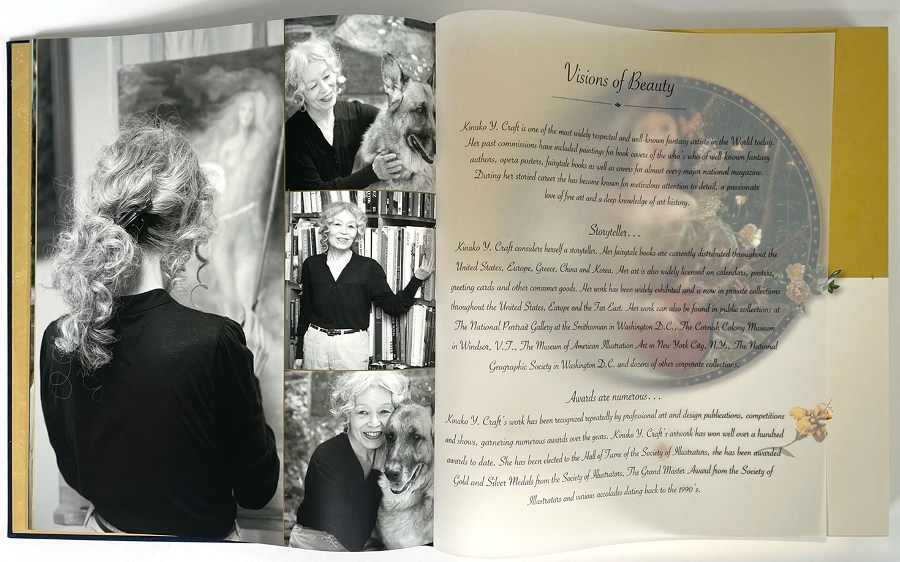 Visions of Beauty
Kinuko Y. Craft is one of the most widely respected and well-known fantasy artists in the World today.
Her past commissions have included paintings for book covers of the who's who of well-known fantasy
authors, opera posters, fairytale books as well as covers for almost every major national magazine.
During her storied career she has become known for meticulous attention to detail, a passionate
love of fine art and a deep knowledge of art history.
Storyteller...
Kinuko Y. Craft considers herself a storyteller. Her fairytale books are currently distributed throughout the
United States, Europe, Greece, China and Korea. Her art is also widely licensed on calendars, posters,
greeting cards and other consumer goods. Her work has been widely exhibited and is now in private collections
throughout the United States, Europe and the Far East. Her work can also be found in public collections at
The National Portrait Gallery at the Smithsonian in Washington D.C., The Cornish Colony Museum
in Windsor, V.T., The Museum of American Illustration Art in New York City, N.Y., The National
Geographic Society in Washington D.C. and dozens of other corporate collections.
Awards are numerous...
Kinuko Y. Craft's work has been recognized repeatedly by professional art and design publications, competitions
and shows, garnering numerous awards over the years. Kinuko Y. Craft's artwork has won well over a hundred
awards to date. She has been elected to the Hall of Fame of the Society of Illustrators, she has been awarded
Gold and Silver Medals from the Society of Illustrators, The Grand Master Award from the Society of
Illustrators and various accolades dating back to the 1990's.